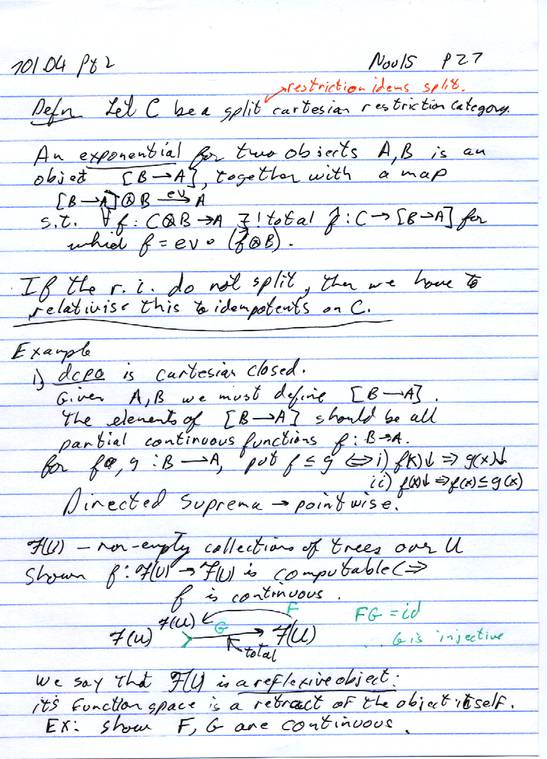 101.04 Pt 2 Nov 15 P27
restriction idems split.
Defn Let C be a split cartesian restriction category.
An exponential for two objects A,B is an
object [B→A], together with a map
[B→A]⊗B ev→ A
s.t. ∀ f : C⊗B→A ∃! total f̂ : C→[B→A] for
which f = ev ∘ (f̂⊗B).
If the r.i. do not split, then we have to
relativise this to idempotents on C.
Example
1) dcpo is cartesian closed.
Given A,B we must define [B→A].
The elements of [B→A] should be all
partial continuous functions f: B→A.
for f, g : B→A, put f ≤ g ⇔ i) f(x)↓ ⇒ g(x)↓
ii) f(x)↓ ⇒ f(x) ≤ g(x)
Directed Suprema → pointwise.
F(U) – non-empty collections of trees over U
Shown f: F(U) → F(U) is computable ⇔
f is continuous.
F(U) F FG = id
F(U) G F(U) G is injective
total
We say that F(U) is a reflexive object:
it's function space is a retract of the object itself.
EX: show F, G are continuous.